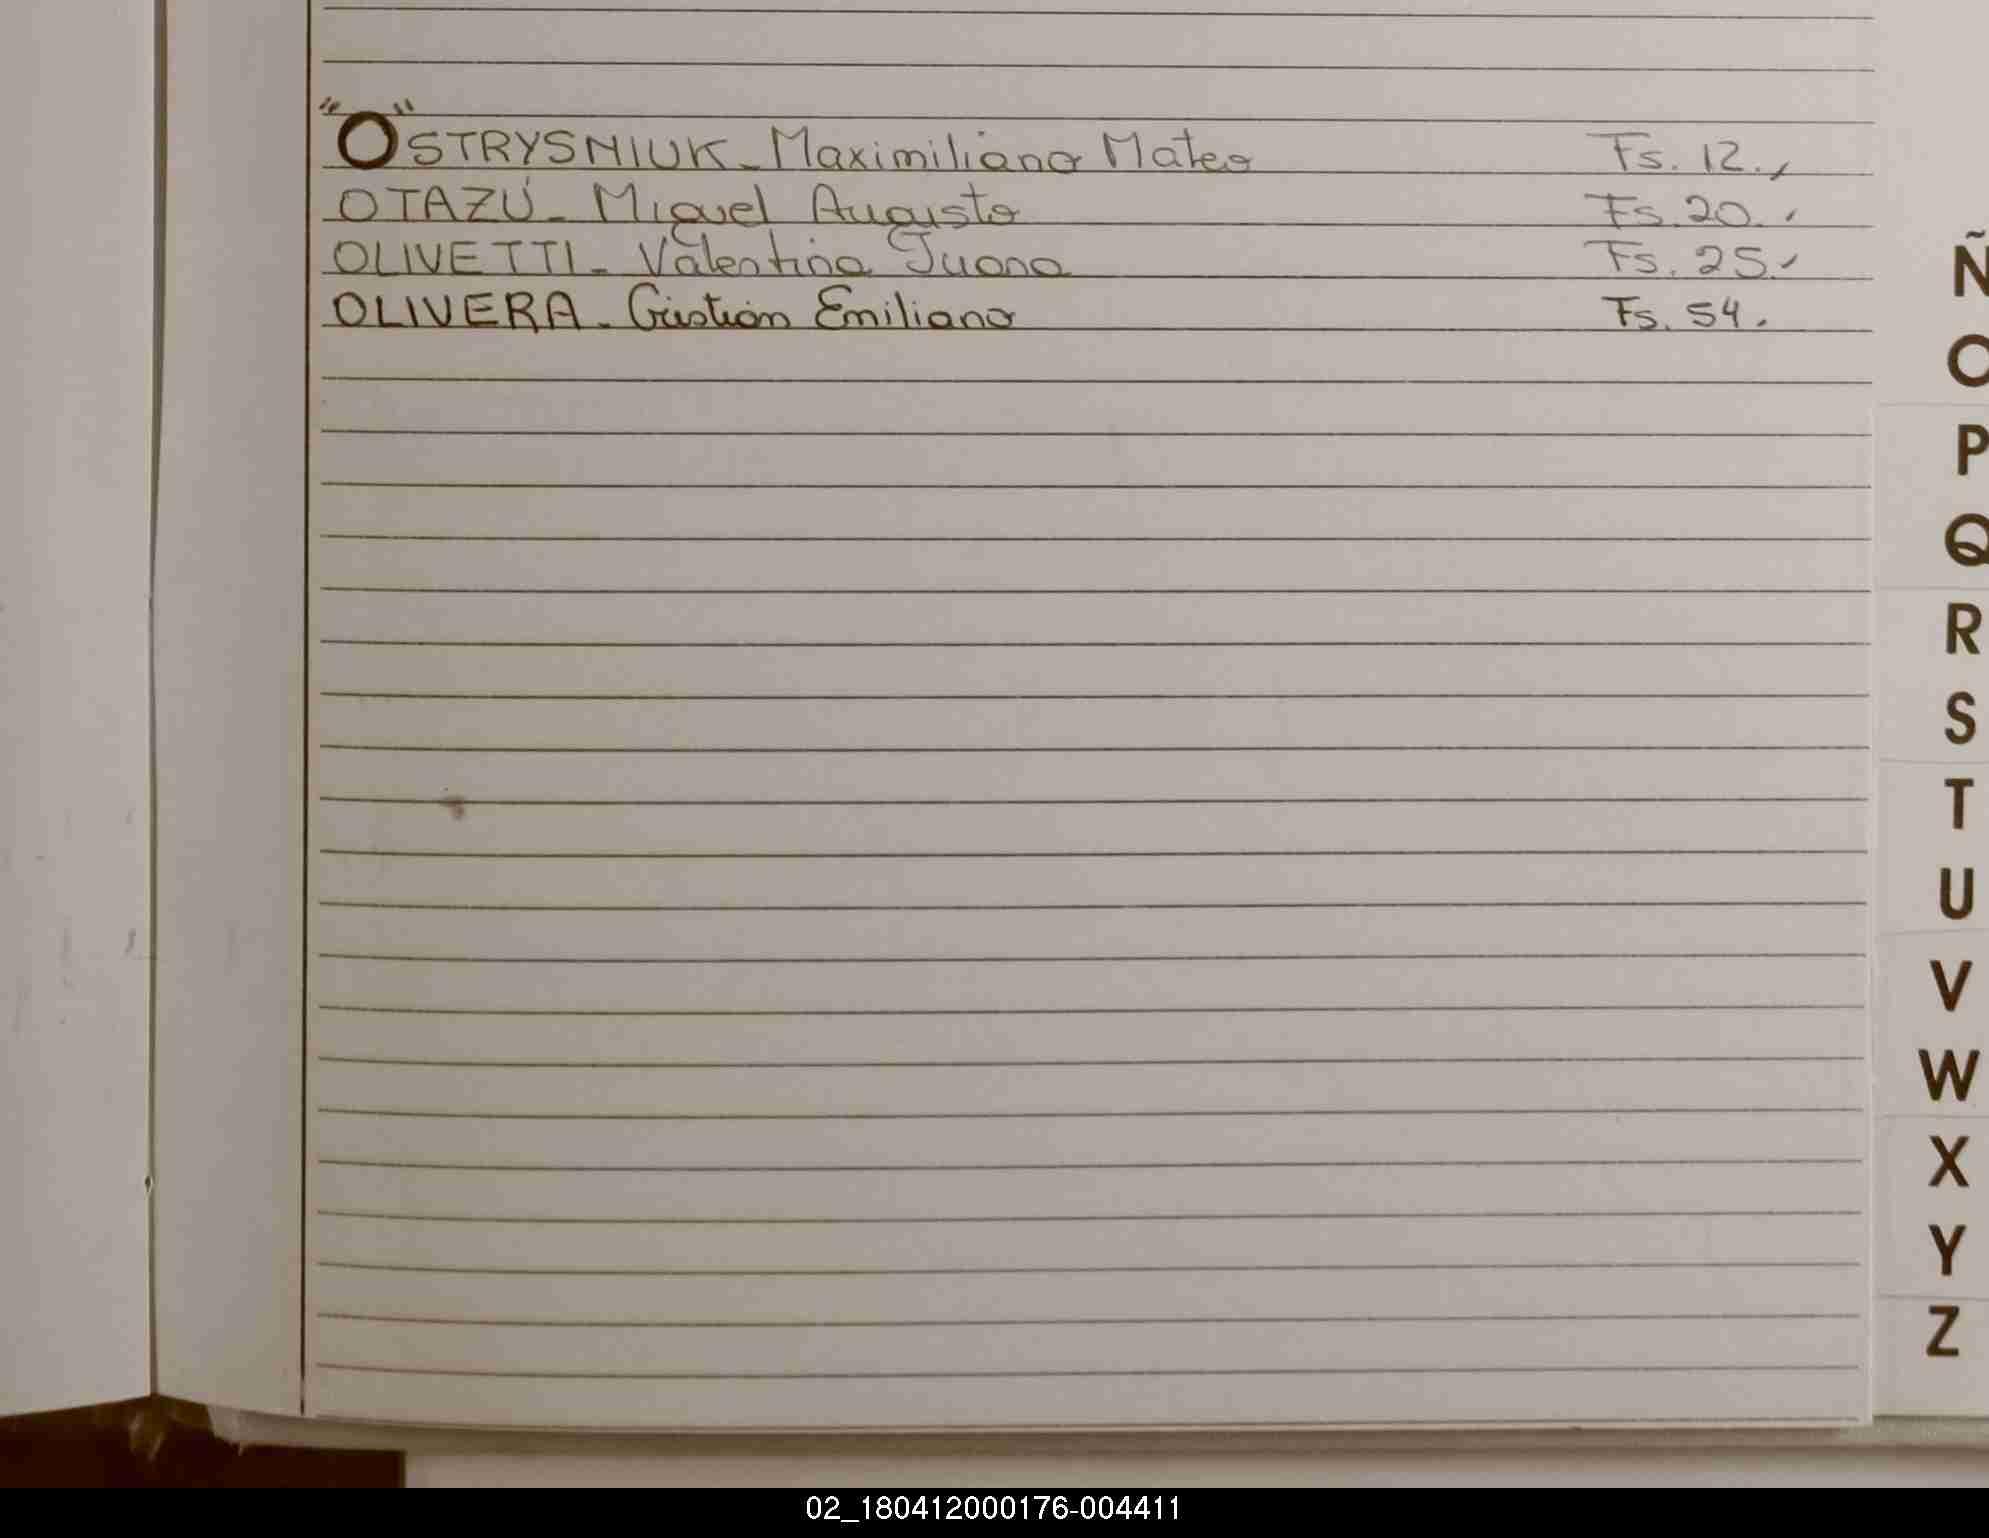 "OSTRYSNIUK - Maximiliano Mateo Fs. 12.,
OTAZÚ - Miguel Augusto Fs. 20.
OLIVETTI - Valentina Juana Fs. 25.
OLIVERA - Cristian Emiliano Fs. 54.
Ñ
O
P
Q
R
S
T
U
V
W
X
Y
Z
02_180412000176-004411